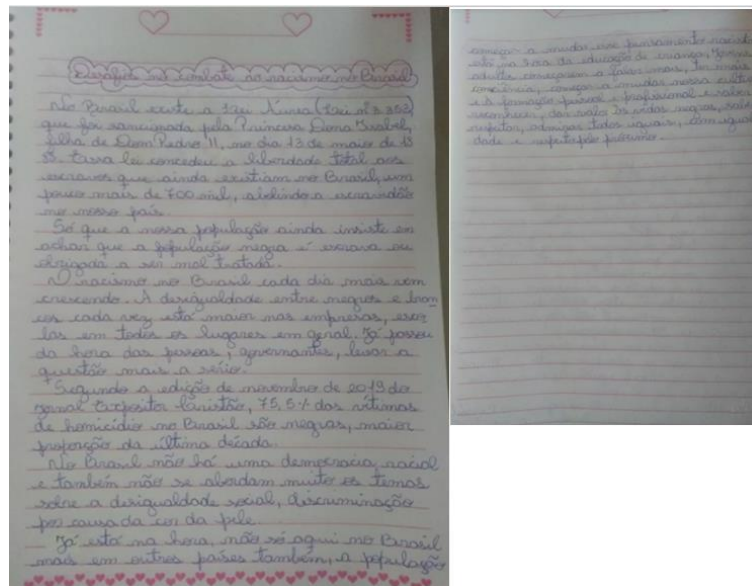 Desafios no combate ao racismo no Brasil
No Brasil existe a Lei Áurea (Lei nº 3.353)
que foi sancionada pela Princesa Dona Isabel,
filha de Dom Pedro II, no dia 13 de maio de 18
88. Essa lei concedeu a liberdade total aos
escravos que ainda existiam no Brasil, um
pouco mais de 700 mil, abolindo a escravidão
no nosso país.
Só que a nossa população ainda insiste em
achar que a população negra é escrava ou
obrigada a ser mal tratada.
O racismo no Brasil cada dia mais vem
crescendo. A desigualdade entre negros e bran
cos cada vez está maior nas empresas, esco
las em todos os lugares em geral. Já passou
da hora das pessoas, governantes, levar a
questão mais a sério.
Segundo a edição de novembro de 2019 do
jornal Expositor Cristão, 75,5% das vítimas
de homicídio no Brasil são negras, maior
proporção da última década.
No Brasil não há uma democracia racial
e também não se abordam muito os temas
sobre a desigualdade social, discriminação
por causa da cor da pele.
Já está na hora, não só aqui no Brasil
mas em outros países também, a população
começar a mudar esse pensamento racista
está na hora da educação de crianças, jovens
adultos começarem a fazer mais, ter mais
consciência, começar a mudar nossa cultu
e a formação pessoal e profissional e saber
reconhecer, dar valor às vidas negras, sem
respeitar, admirar todos iguais, com igual
dade e respeito pelo próximo.